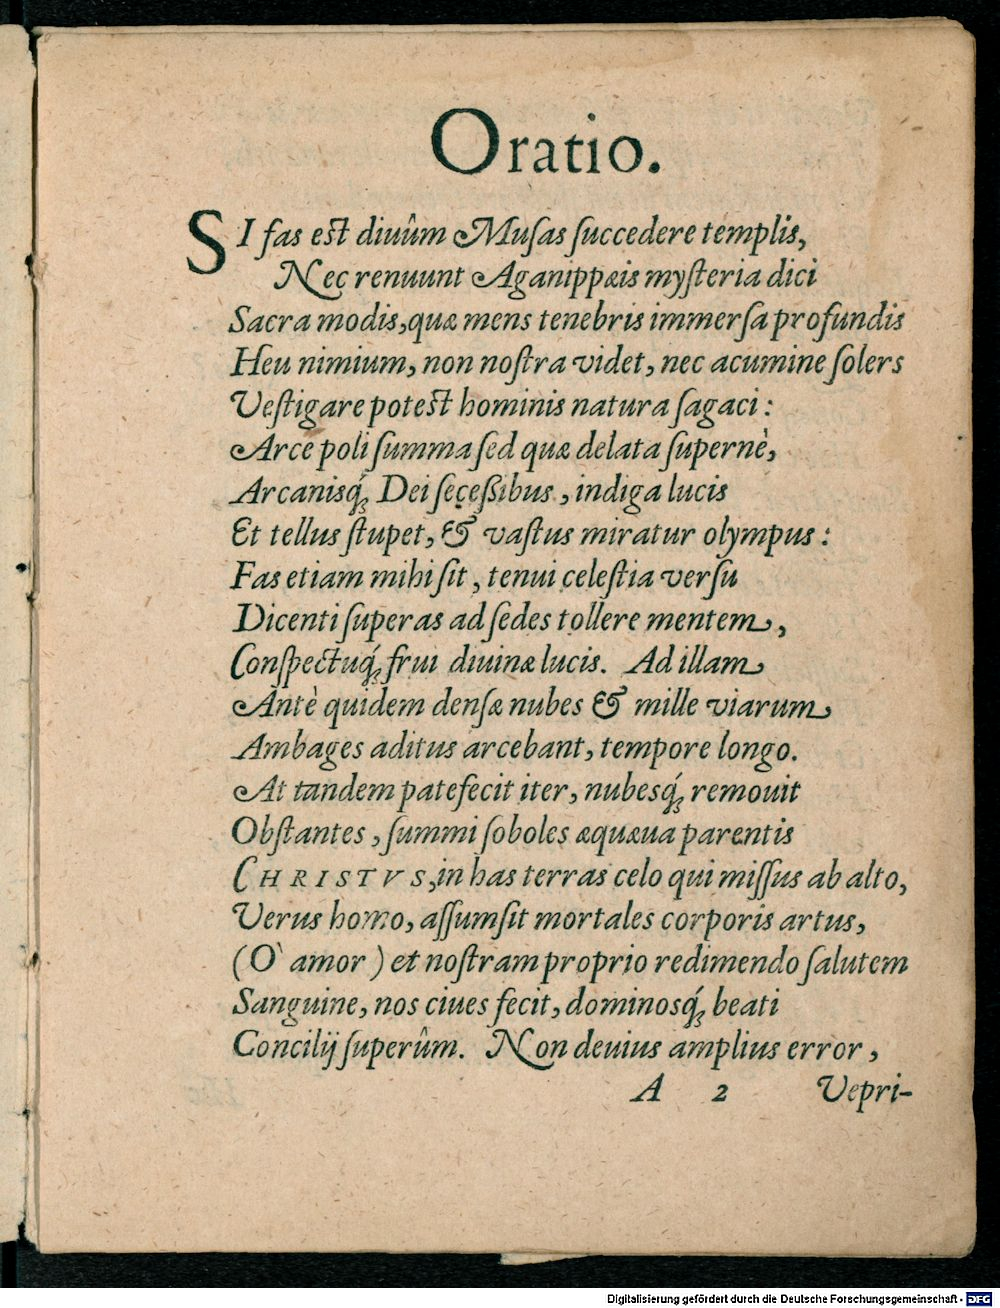 Oratio.
SI fas est diuûm Musas succedere templis,
Nec renuunt Aganippæis mysteria dici
Sacra modis, quæ mens tenebris immersa profundis
Heu nimium, non nostra videt, nec acumine solers
Vestigare potest hominis natura sagaci:
Arce poli summa sed quæ delata supernè,
Arcanisq́; Dei seceßibus, indiga lucis
Et tellus stupet, & vastus miratur olympus:
Fas etiam mihi sit, tenui celestia versu
Dicenti superas ad sedes tollere mentem,
Conspectuq́; frui diuinæ lucis. Ad illam
Antè quidem densæ nubes & mille viarum
Ambages aditus arcebant, tempore longo.
At tandem patefecit iter, nubesq́; remouit
Obstantes, summi soboles æquæua parentis
CHRISTVS, in has terras celo qui missus ab alto,
Verus homo, assumsit mortales corporis artus,
(O' amor) et nostram proprio redimendo salutem
Sanguine, nos ciues fecit, dominosq́; beati
Concilij superûm. Non deuius amplius error,
A 2 Vepri-
Digitalisierung gefördert durch die Deutsche Forschungsgemeinschaft - DFG